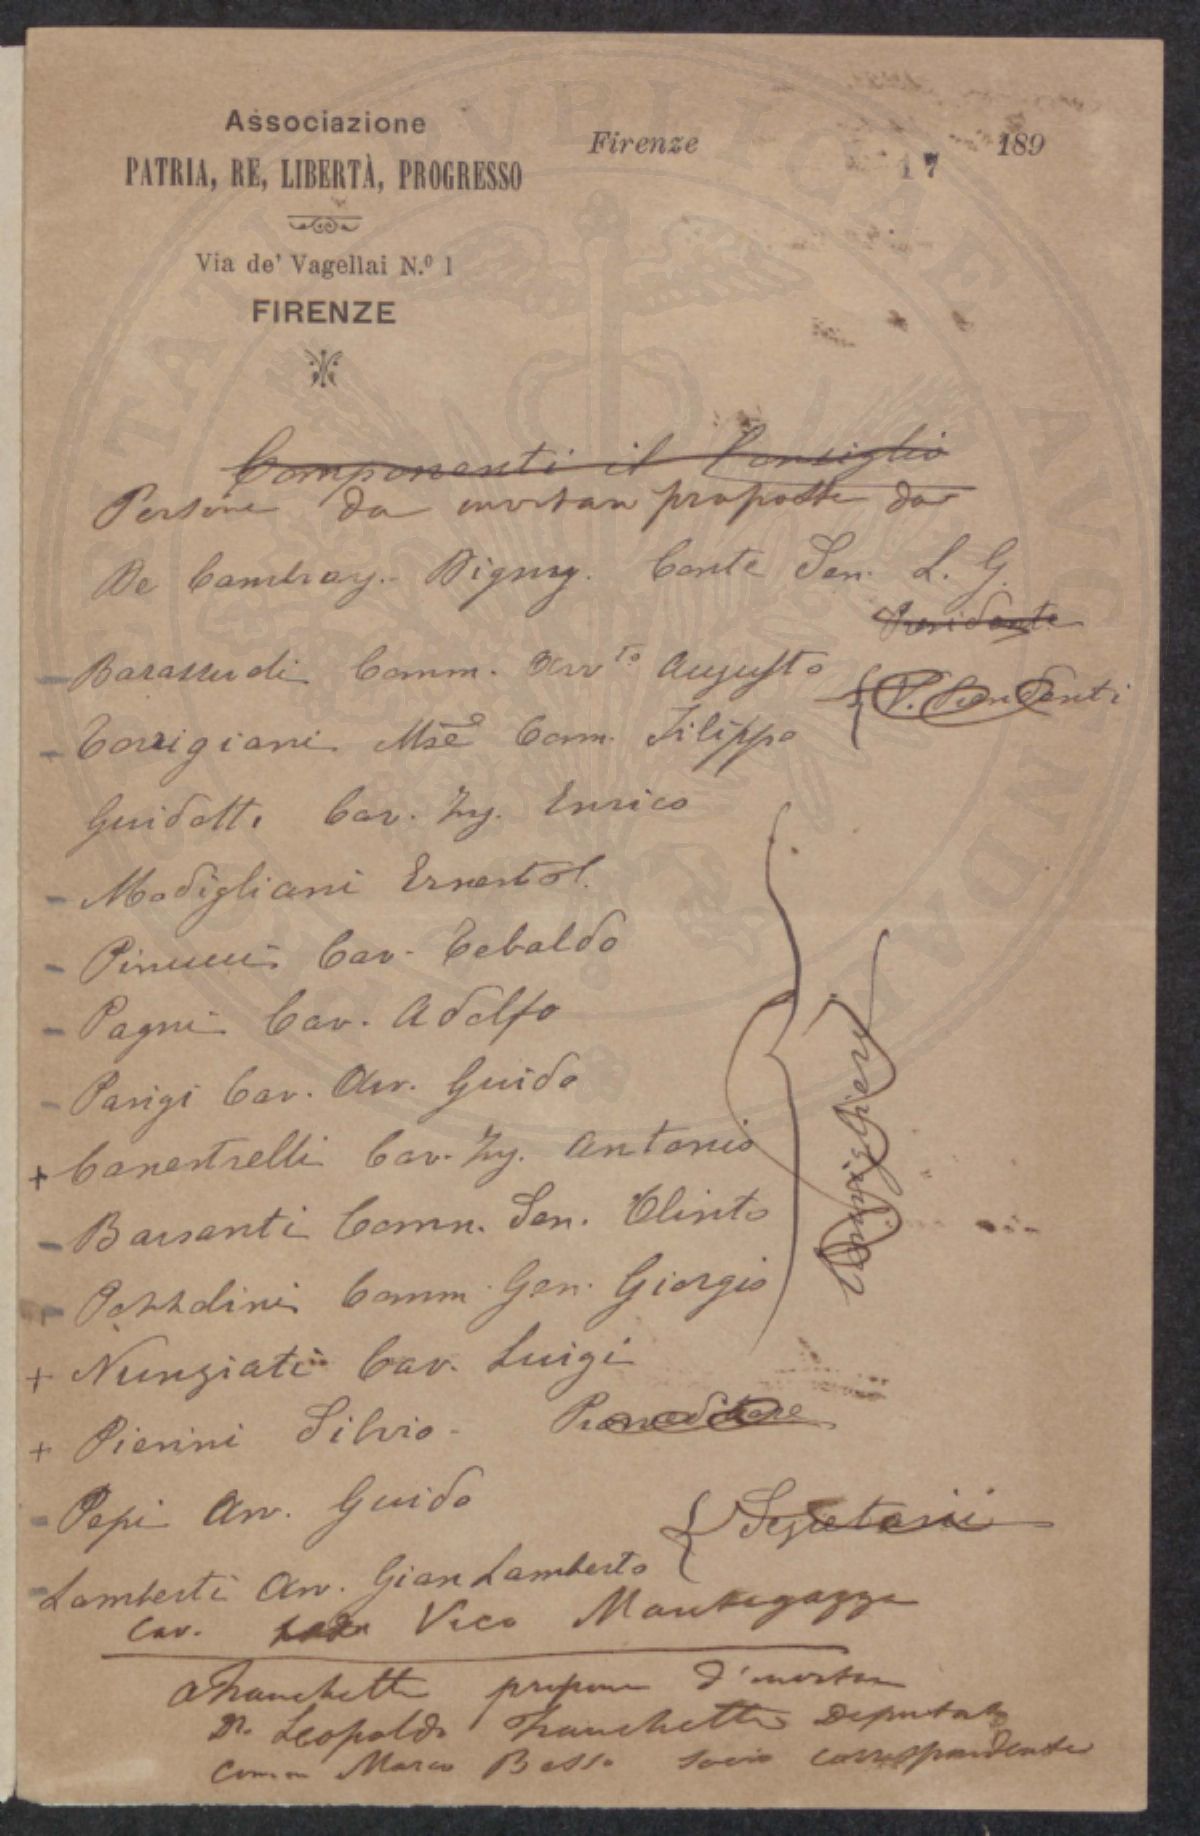 Associazione
PATRIA, RE, LIBERTÀ, PROGRESSO
Via de' Vagellai N.º 1
FIRENZE
Firenze 189
17
Componenti il Consiglio
Persone da invitare proposte da
De Cambray-Digny. Conte Sen. L. G.
Presidente
- Barazzuoli Comm. Avv.to Augusto
{ V. Presidenti
- Torrigiani Mse Comm. Filippo
Guidotti Cav. Ing. Enrico
- Modigliani Ernesto
- Pinucci Cav. Tebaldo
- Pagni Cav. Adolfo
- Parigi Cav. Avv. Guido
+ Canestrelli Cav. Ing. Antonio
- Barsanti Comm. Sen. Olinto
- Pozzolini Comm. Gen. Giorgio
Consiglieri
+ Nunziati Cav. Luigi
+ Pierini Silvio - Provveditore
- Pepi Avv. Guido
{ Segretarii
- Lamberti Avv. Gian Lamberto
Cav. Vico Mantegazza
Franchetti propone d'invitare
Dr. Leopoldo Franchetti Deputato
Comm Marco Besso socio corrispondente